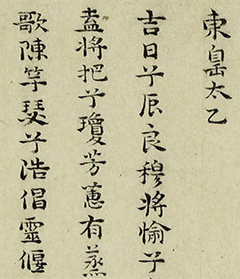 東皇太乙
吉日兮辰良穆將愉兮
盍將把兮瓊芳蕙有蒸
歌陳竽瑟兮浩倡靈偃